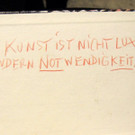 KUNST IST NICHT LUX
NDERN NOTWENDIGKEIT